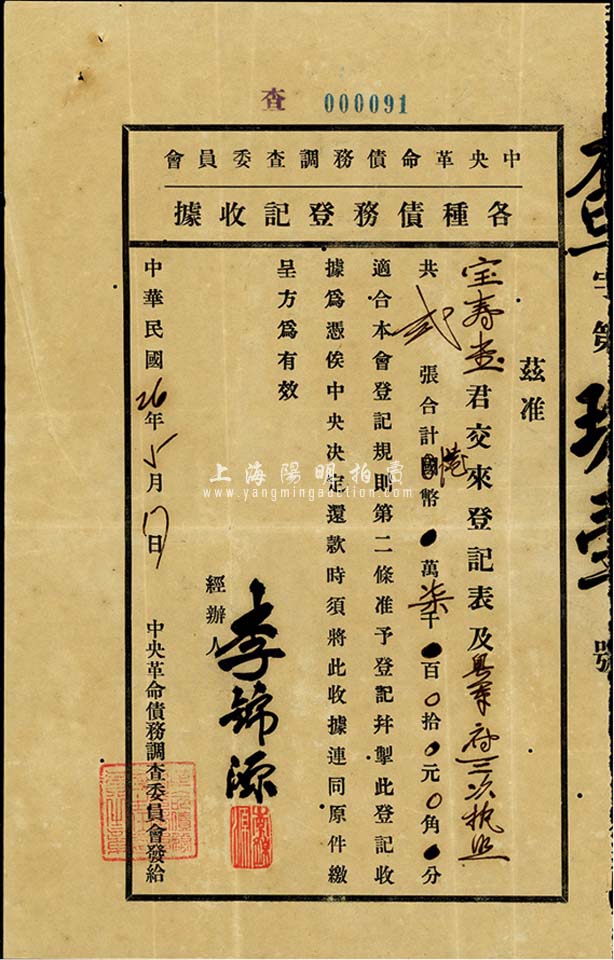 查 000091
中央革命債務調查委員會
各種債務登記收據
茲准
宝壽堂君交來登記表及粵軍府三次執照
共 弍 張合計國港幣 0萬柒千0百0拾0元0角0分
適合本會登記規則第二條准予登記幷掣此登記收
據爲憑俟中央決定還款時須將此收據連同原件繳
呈方爲有效
經辦人 李錦源
中央革命債務調查委員會發給
中華民國26年5月17日
查字第 玖壹 號
上海陽明拍賣
www.yangmingauction.com